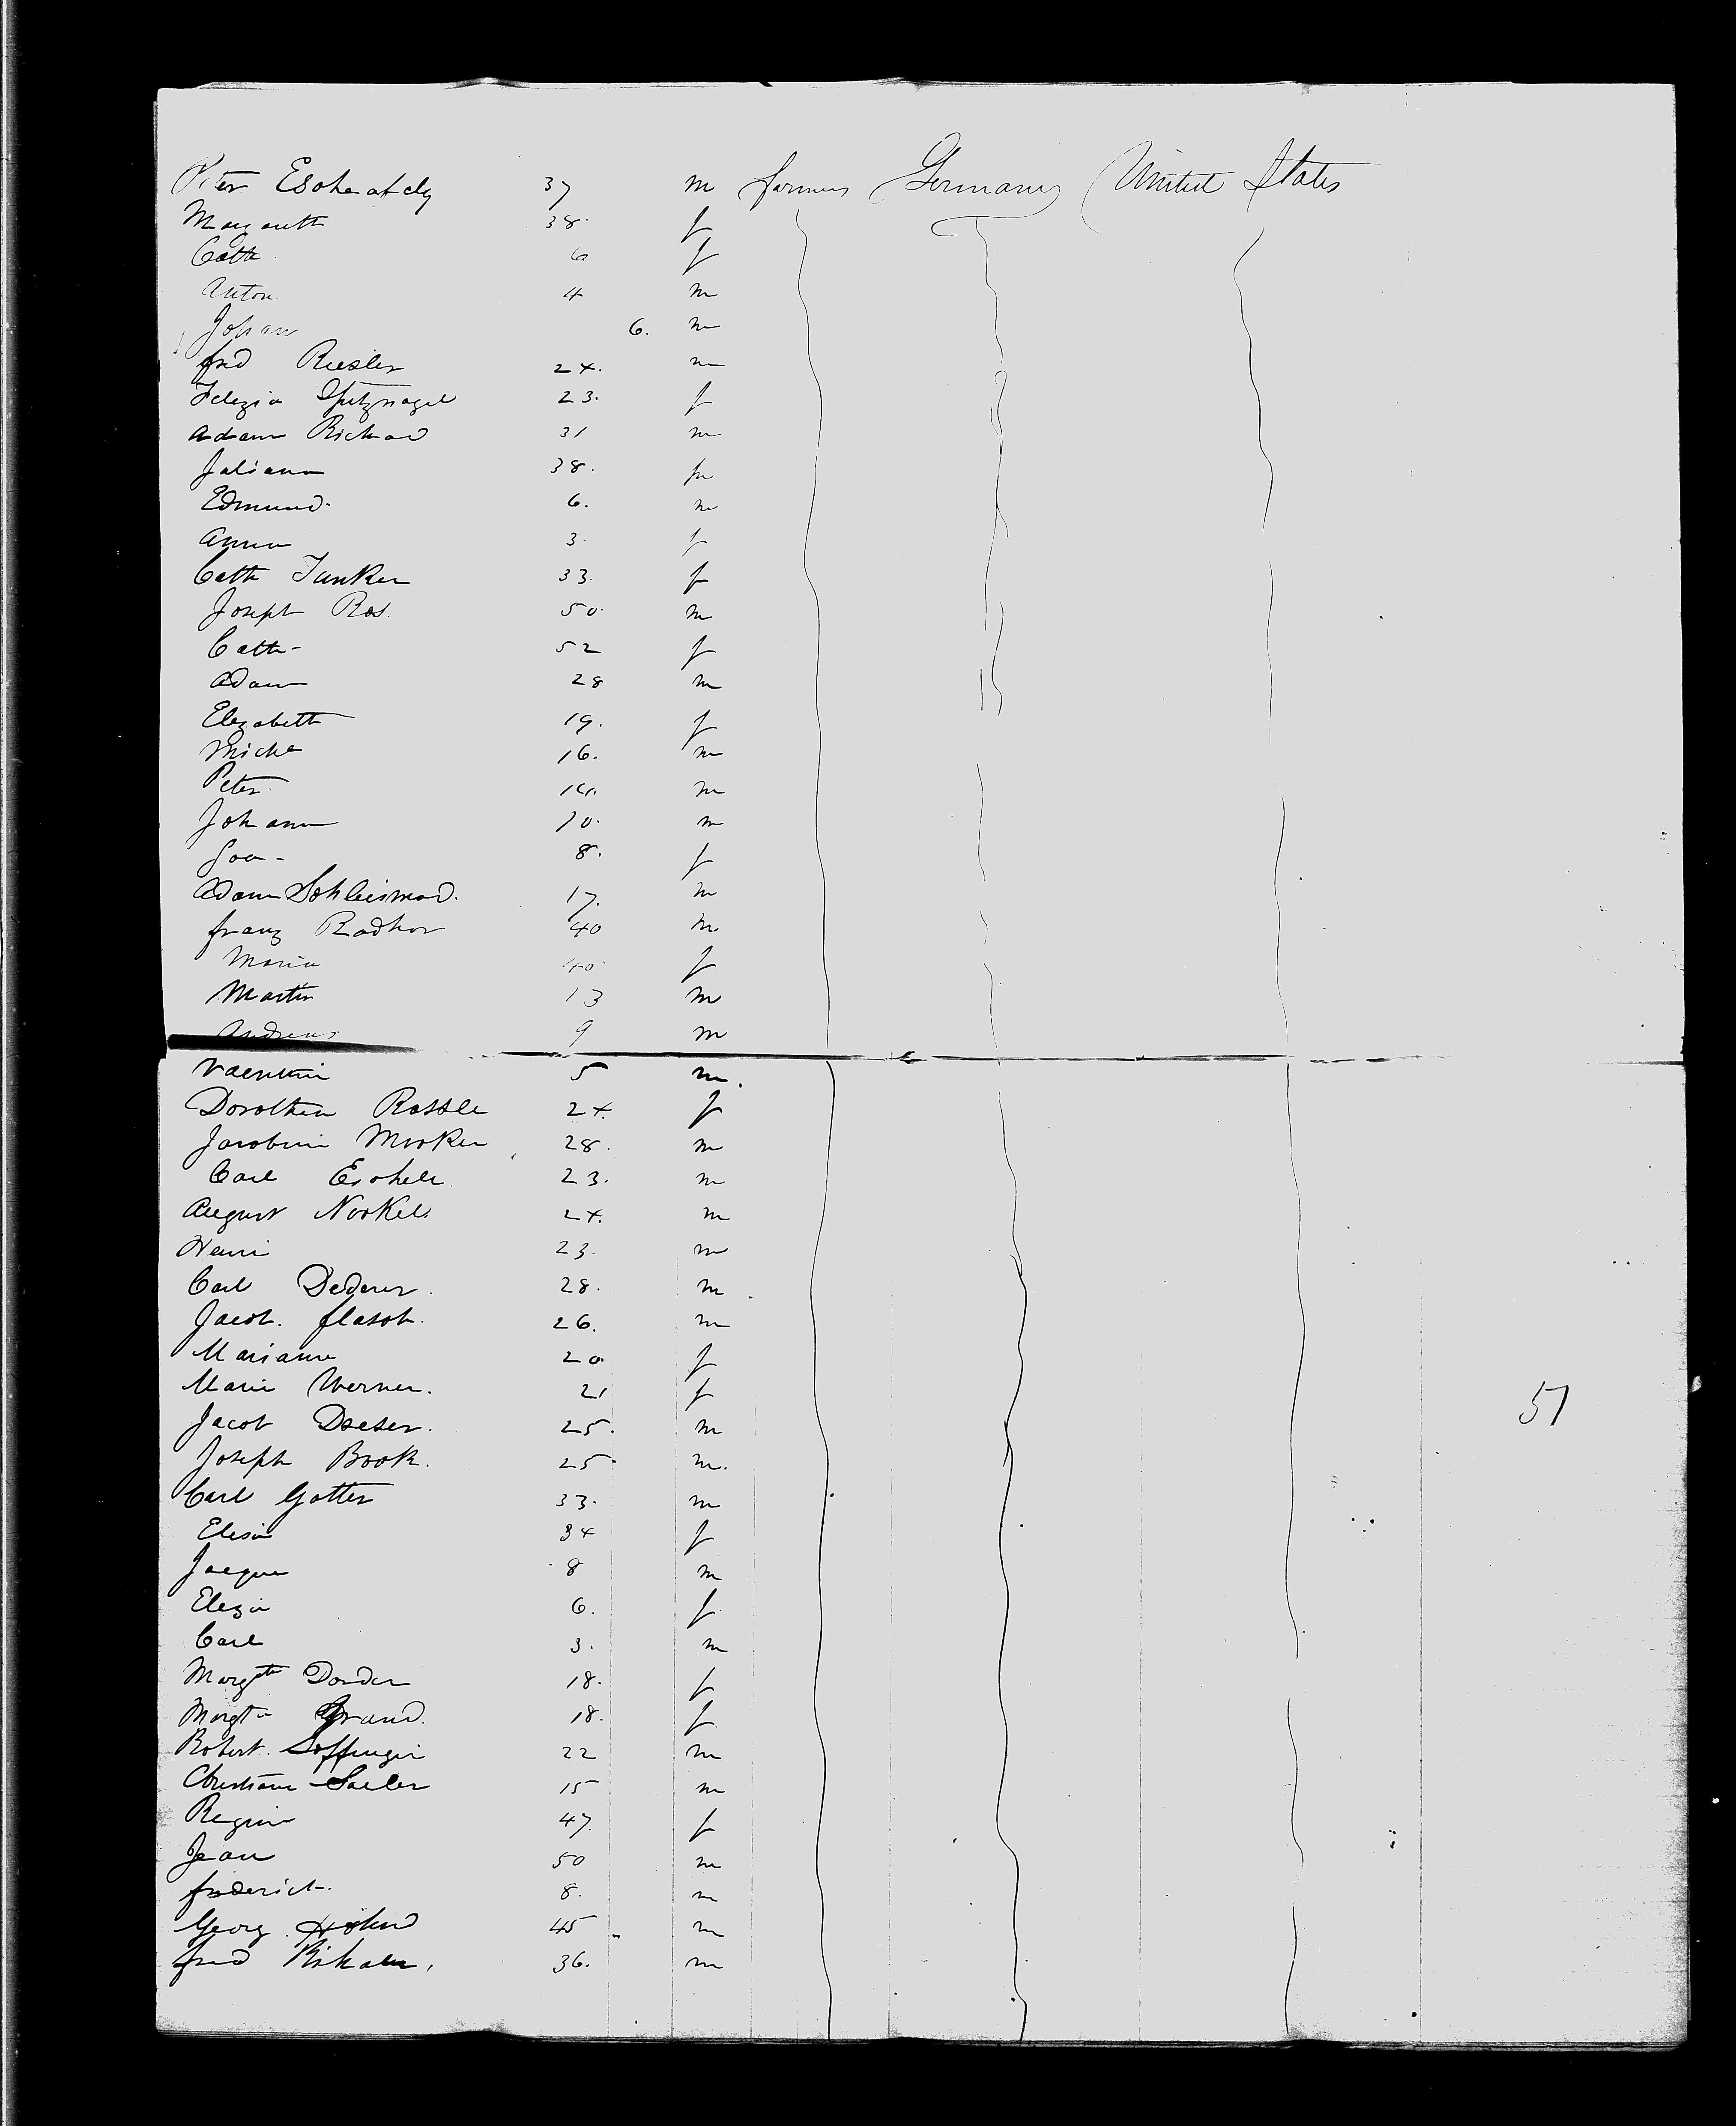 Peter Eschenfely 37 m farmer Germany United States
Margareth 38. f
Cath. 6 f
Anton 4 m
Johann 6. m
fred Riesler 24. m
Felezia Spitznagel 23. f
Adam Richard 31 m
Juliana 38. f
Edmund. 6. m
Anna 3. f
Cath Junker 33. f
Joseph Ros. 50. m
Cath- 52 f
Adam 28 m
Elezabeth 19. f
Miche 16. m
Peter 14. m
Johann 10. m
8. f
Adam 17. m
franz Radhor 40 m
Maria 40. f
Martin 13 m
Andreas 9 m
Valentin 5 m.
Dorothea Rossle 24. f
Jacobini Mooker 28. m
Carl Eschele 23. m
August Nockels 24. m
Henri 23. m
Carl Dederer. 28. m.
Jacob. flasch. 26. m
Mariane 20. f
Marie Werner. 21 f
Jacob Dreser. 25. m
Joseph Book. 25. m.
Carl Gotter 33. m
Elisia 34 f
Jacque 8 m
Elezia 6. f
Carl 3. m
Margth Dorder 18. f
Margth Grand. 18. f
Robert. Soffinger 22 m
Christian Sailer 15 m
Regina 47. f
Jean 50 m
frederick. 8. m
Georg 45 m
fred 36. m
51